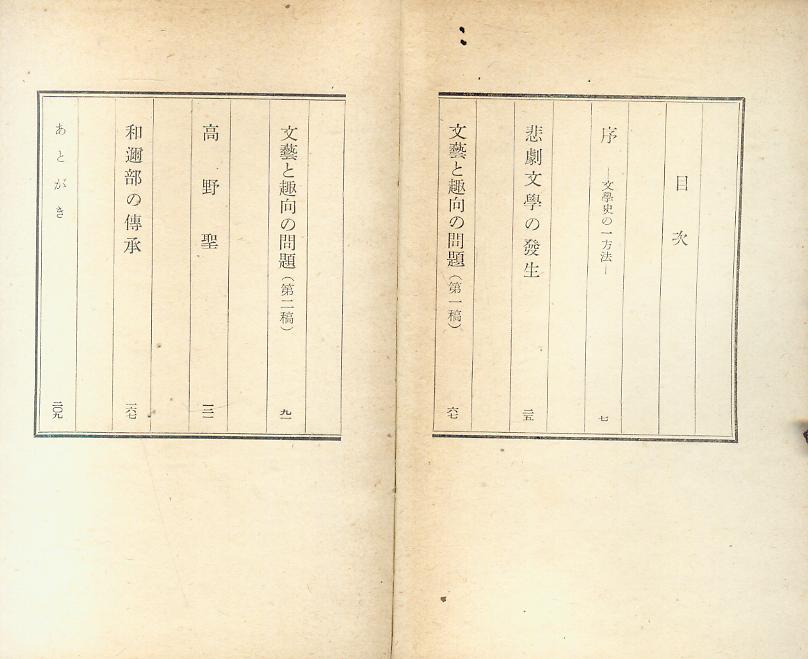 目次
序 ―文學史の一方法― 七
悲劇文學の發生 二五
文藝と趣向の問題（第一稿） 六七
文藝と趣向の問題（第二稿） 九一
高野聖 一三一
和邇部の傳承 一六七
あとがき 二〇九